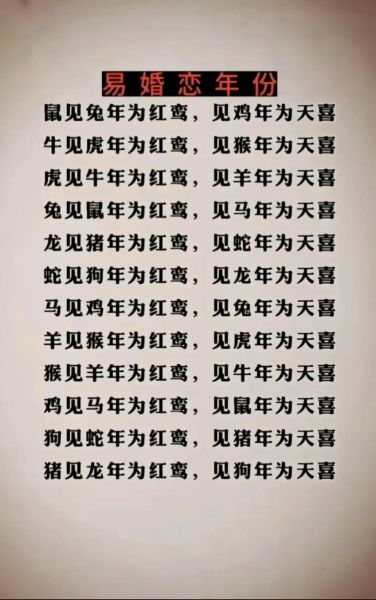 易婚恋年份
鼠见兔年为红鸾，见鸡年为天喜
牛见虎年为红鸾，见猴年为天喜
虎见牛年为红鸾，见羊年为天喜
兔见鼠年为红鸾，见马年为天喜
龙见猪年为红鸾，见蛇年为天喜
蛇见狗年为红鸾，见龙年为天喜
马见鸡年为红鸾，见兔年为天喜
羊见猴年为红鸾，见虎年为天喜
猴见羊年为红鸾，见牛年为天喜
鸡见马年为红鸾，见鼠年为天喜
狗见蛇年为红鸾，见猪年为天喜
猪见龙年为红鸾，见狗年为天喜